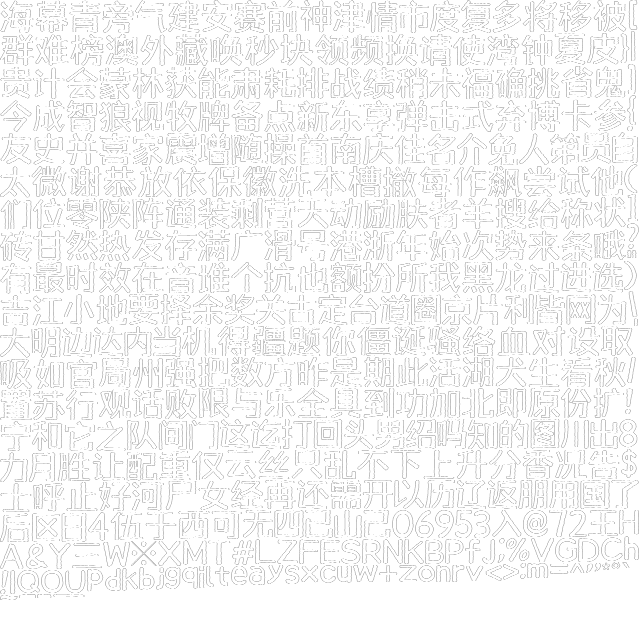 海幕青旁气建安赛前神津情市度复多将移被
群难榜澳外藏唤秒块领频换请使湾钟夏皮
贵计会蒙林获能肃耗排战绩稍未福确挑省鬼
今成智狼视牧牌备点新东享弹击式弃博卡参
友史并喜家震增陶操首南庆往名介免人第员自
太微谢恭放依保徽洗本槽撤每作飙尝试他(
们位零陕阵通装剩营天动励肤者羊搜给称状
砖甘然热发存满广滑号港浙年始次势来条哦?
有最时效在音推个抗也额扮所我黑龙过进选)
吉江小地要择余奖关古定台道圈京片利皆网为\
大明边达内当机得疆颜你僵诞骚络血对设取
吸如官周州强把数方昨是期此活湖犬生看秋/
苏行观话败限与乐全具到功加北即原份扩!
宁和它之队间门这运打回头男绍吗知的图川出8
力月胜让配重仅云丝只乱不下上升分香况害$
北呼止好河尸女经再还需开以历辽返朋用国了
后区日4伍于西可无四己山己06953入@72王H
A&Y二W※XMT#LZFESRNKBPfJ;%VGDCh
IQOUPdkbjgqilteaysxcuw+zonrv<>:m=^